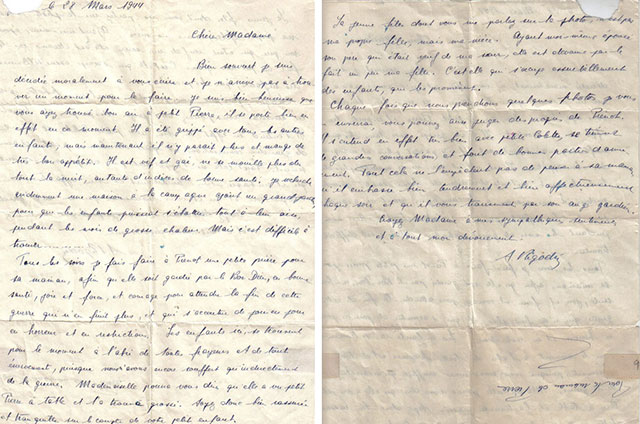 6 28 Mars 1944
Chère Madame
Bien souvent je suis
décidée moralement à vous écrire et je n'arrive pas à trou-
ver un moment pour le faire. Je suis bien heureuse que
vous ayez trouvé bon air à petit Pierre, il se porte bien en
effet en ce moment. Il a été grippé avec tous les autres
enfants, mais maintenant il n'y paraît plus et mange de
très bon appétit. Il est vif et gai, ne se mouille plus du
tout la nuit, autant d'indices de bonne santé. Je recherche
une maison à la campagne ayant un grand parc
pour que les enfants puissent s'ébattre tout à leur aise
pendant les mois de grosse chaleur. Mais c'est difficile à
trouver
Tous les soirs je fais faire à Pierrot une petite prière pour
sa maman, afin qu'elle soit gardée par le Bon Dieu, en bonne
santé, joie et force, et courage pour attendre la fin de cette
guerre qui n'en finit plus, et qui s'accentue de jour en jour
en horreur et en destruction. Les enfants ici, se trouvent
pour le moment à l'abri de toutes frayeurs et de tout
énervement, puisque nous n'avons encore souffert qu'indirectement
de la guerre. Mademoiselle pourra vous dire qu'elle a vu petit
Pierre à table et l'a trouvé grossi. Soyez donc bien rassurée
et tranquille sur le compte de votre petit enfant.
La jeune fille dont vous me parlez sur la photo
ma propre fille, mais ma nièce. Ayant moi-même épousé
son père qui était veuf de ma soeur, elle est devenue par le
fait un peu ma fille. C'est elle qui s'occupe essentiellement
des enfants, qui les promène.
Chaque fois que nous prendrons quelques photos je vous
enverrai, vous pourrez ainsi juger du progrès de
Il s'entend en effet très bien avec petite Colette, se tiennent
de grandes conversations et font de bonnes parties d'amu-
sement. Tout cela ne l'empêche pas de penser à sa maman
qu'il embrasse bien tendrement et bien affectueusement
chaque soir et qu'il vous transmet par son ange gardien.
Croyez Madame à ma sympathique
et à tout mon dévouement
Pour la maman de Pierre